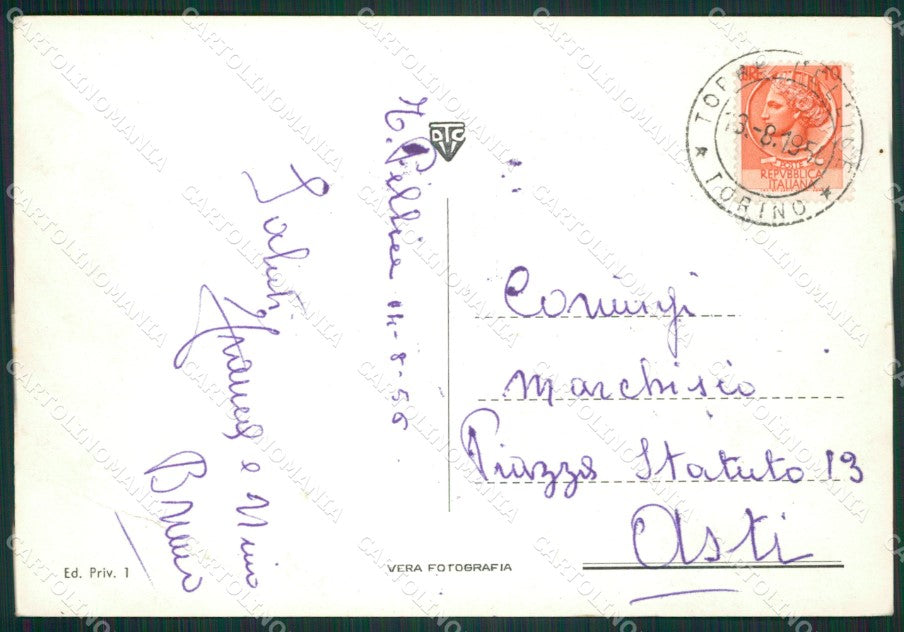 T. Pellice 14-8-56
Saluti
Franca e Nino
Bruno
DTCV
LIRE 10
POSTE
REPVBBLICA
ITALIANA
TORRE PELLICE
-8.195
* TORINO *
Coniugi
Marchisio
Piazza Statuto 13
Asti
Ed. Priv. 1
VERA FOTOGRAFIA
CARTOLINOMANIA